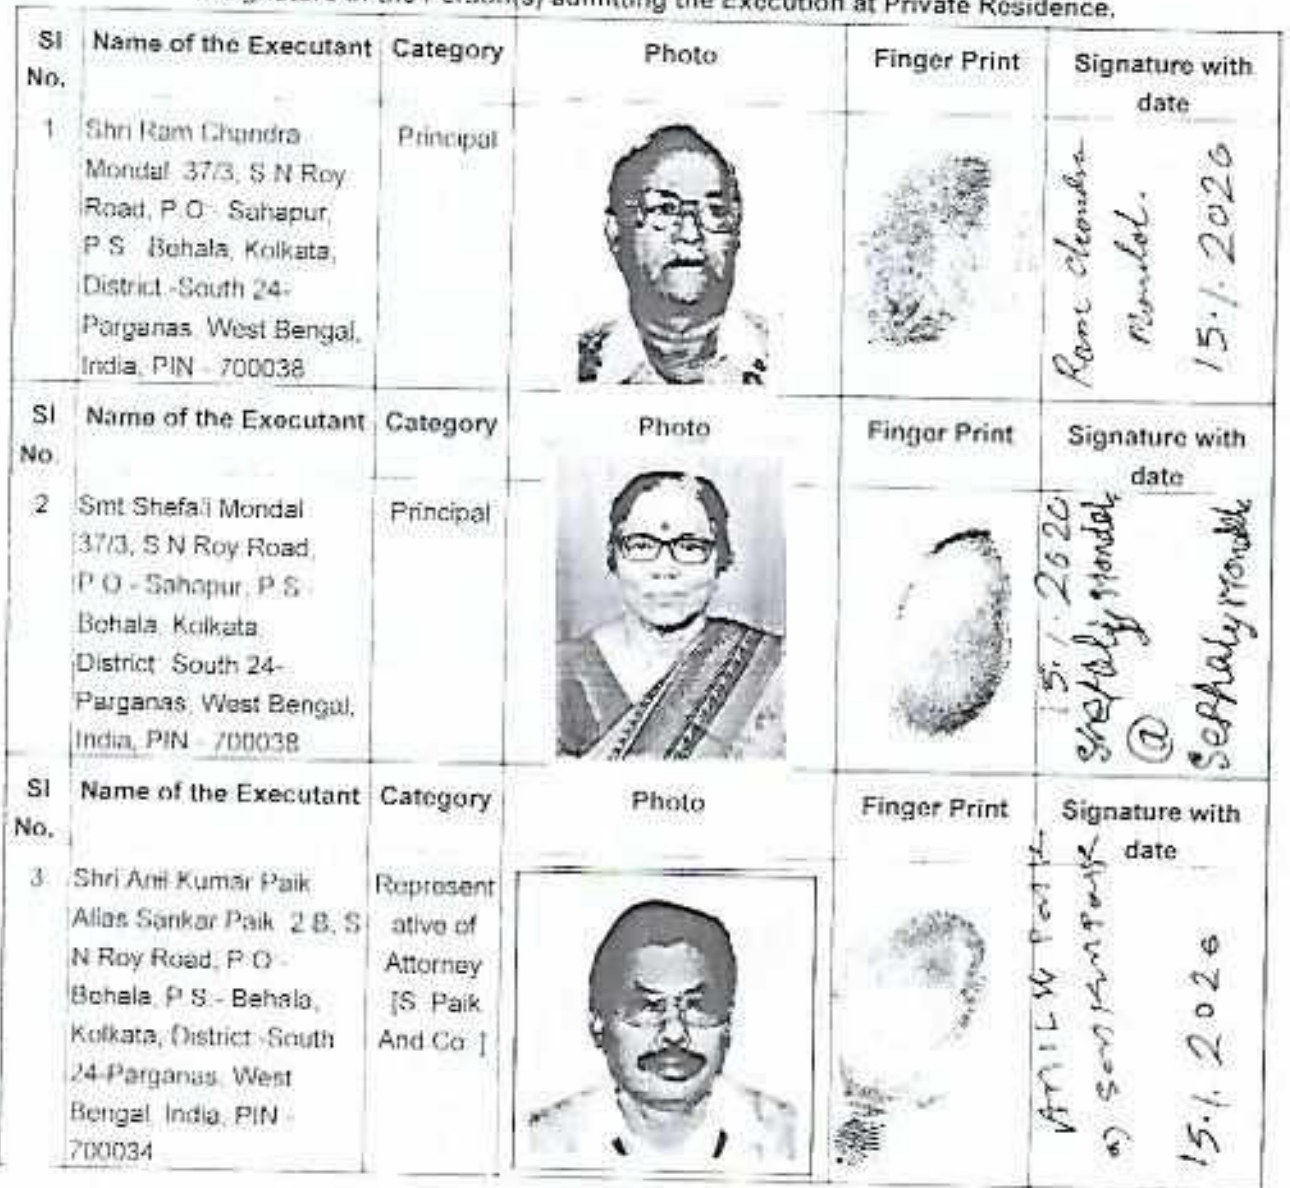 Signature of the Person(s) admitting the Execution at Private Residence.
Sl No. Name of the Executant Category Photo Finger Print Signature with date
1 Shri Ram Chandra
Mondal 37/3, S N Roy
Road, P.O - Sahapur,
P S Behala, Kolkata,
District -South 24-
Parganas, West Bengal,
India, PIN - 700038
Principal
Ram Chandra
Mondal.
15.1.2020
Sl No. Name of the Executant Category Photo Finger Print Signature with date
2 Smt Shefali Mondal
37/3, S N Roy Road,
P O - Sahapur, P S -
Behala, Kolkata,
District South 24-
Parganas, West Bengal,
India, PIN - 700038
Principal
15.1.2020
Shefaly Mondal
@
Sephaly Mondal
Sl No. Name of the Executant Category Photo Finger Print Signature with date
3 Shri Anil Kumar Paik
Alias Sankar Paik 2 B, S
N Roy Road, P O -
Behala, P S - Behala,
Kolkata, District -South
24-Parganas, West
Bengal, India, PIN -
700034
Represent
ative of
Attorney
[S Paik
And Co ]
15.1.2020